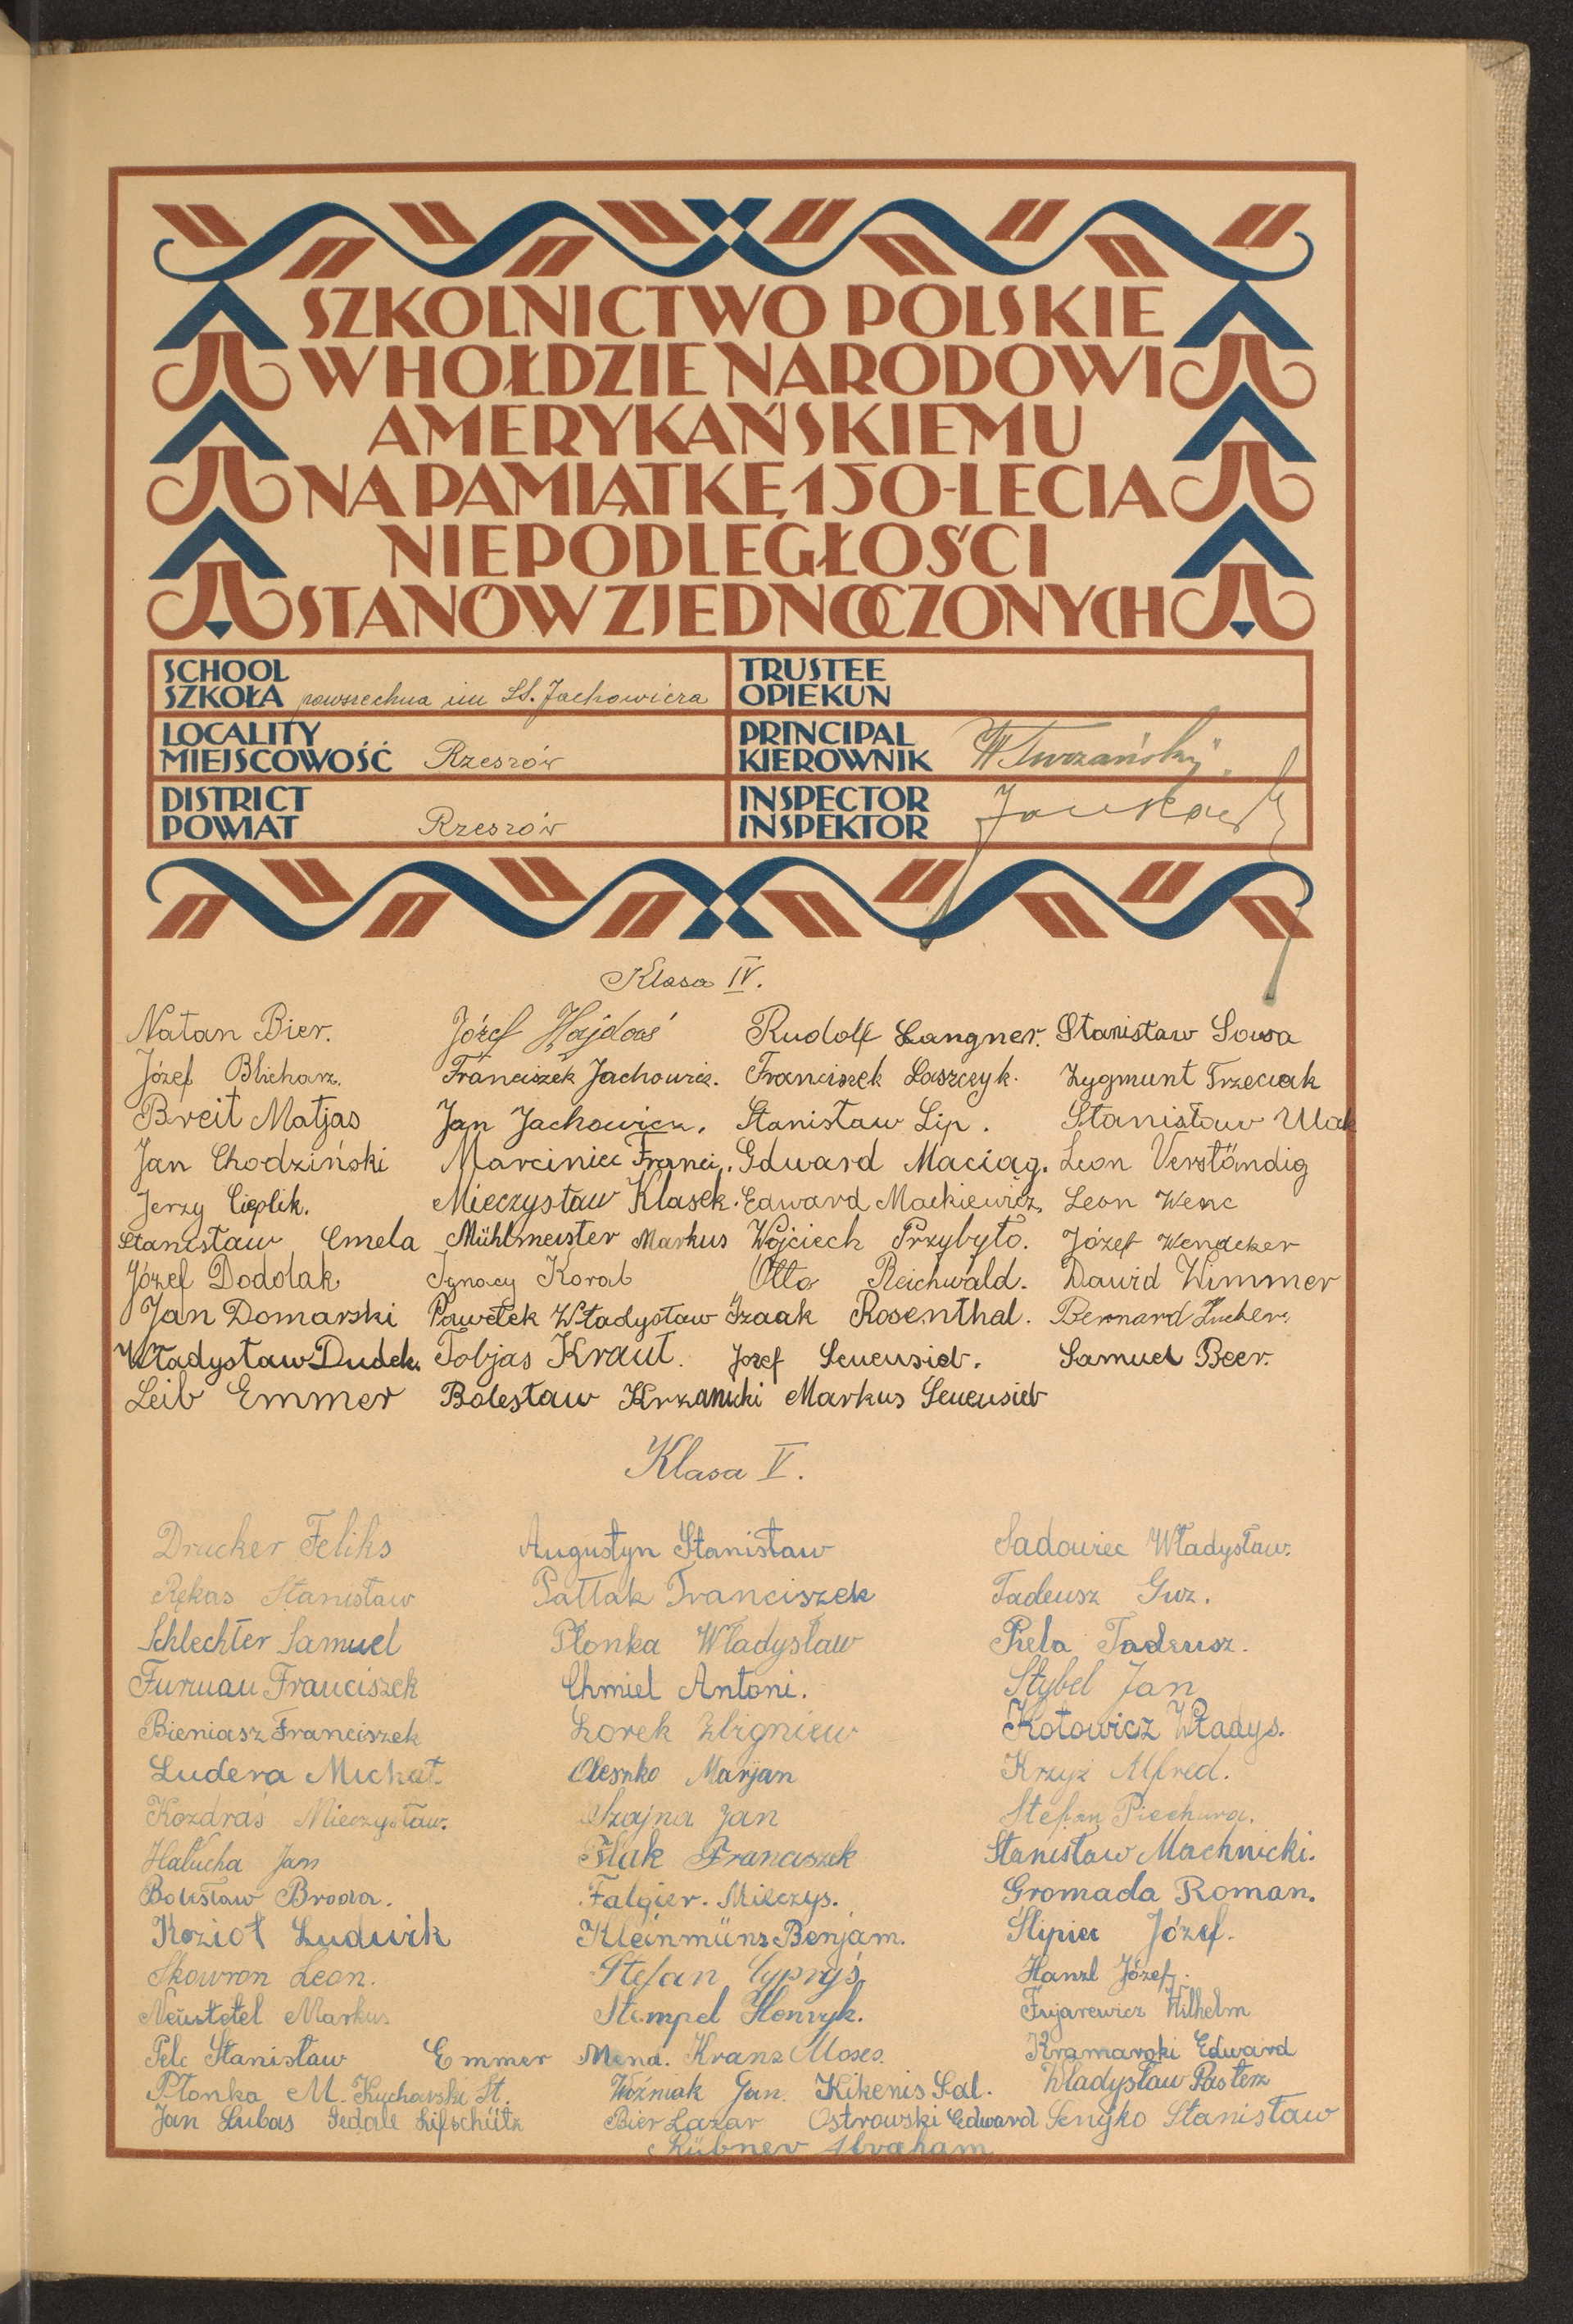 SZKOLNICTWO POLSKIE
W HOŁDZIE NARODOWI
AMERYKAŃSKIEMU
NA PAMIĄTKĘ 150-LECIA
NIEPODLEGŁOŚCI
STANÓW ZJEDNOCZONYCH
SCHOOL
SZKOŁA powszechna im St. Jachowicza
TRUSTEE
OPIEKUN
LOCALITY
MIEJSCOWOŚĆ Rzeszów
PRINCIPAL
KIEROWNIK
DISTRICT
POWIAT Rzeszów
INSPECTOR
INSPEKTOR
Klasa IV.
Natan Bier. Józef Hajdaś Rudolf Langner. Stanisław Sowa
Józef Blicharz. Franciszek Jachowicz. Franciszek Laszczyk. Zygmunt Trzeciak
Breit Matjas Jan Jachowicz. Stanisław Lip. Stanisław Ulak
Jan Chodziński Marciniec Franci. Edward Maciąg. Leon Verständig
Jerzy Cieplik. Mieczysław Klasek. Edward Mackiewicz, Leon Wenc
Stanisław Cmela Mühlmeister Markus Wojciech Przybyło. Józef Wendeker
Józef Dodolak Ignacy Korab Otto Reichwald. Dawid Wimmer
Jan Domarski Pawełek Władysław Izaak Rosenthal. Bernard Zucker.
Władysław Dudek. Tobjas Kraut. Józef Seuensieb. Samuel Beer.
Leib Emmer Bolesław Krzanicki Markus Seuensieb
Klasa V.
Drucker Feliks Augustyn Stanisław Sadowiec Władysław.
Rękas Stanisław Pałłak Franciszek Tadeusz Guz.
Schlechter Samuel Płonka Władysław Rela Tadeusz.
Furman Franciszek Chmiel Antoni. Stybel Jan
Bieniasz Franciszek Zorek Zbigniew Kotowicz Władys.
Ludera Michał. Oleszko Marjan Krzyż Alfred.
Kozdraś Mieczysław. Szajna Jan Stefan Piechura.
Hałucha Jan Flak Franciszek Stanisław Machnicki.
Bolesław Broda. Falgier. Mieczys. Gromada Roman.
Kozioł Ludwik Kleinmünz Benjam. Ślipiec Józef.
Skowron Leon. Stefan Cypryś Hanzl Józef.
Neustetel Markus Stempel Henryk. Fujarewicz Wilhelm
Pelc Stanisław Emmer Mend. Kranz Moses. Kramarski Edward
Płonka M. Kucharski St. Woźniak Jan. Kikenis Sal. Władysław Pasterz
Jan Lubas Gedale Lifschütz Bier Lazar Ostrowski Edward Senyko Stanisław
Rübner Abraham